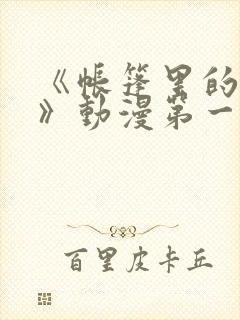 《帐篷里的
》動漫第一
百里皮卡丘